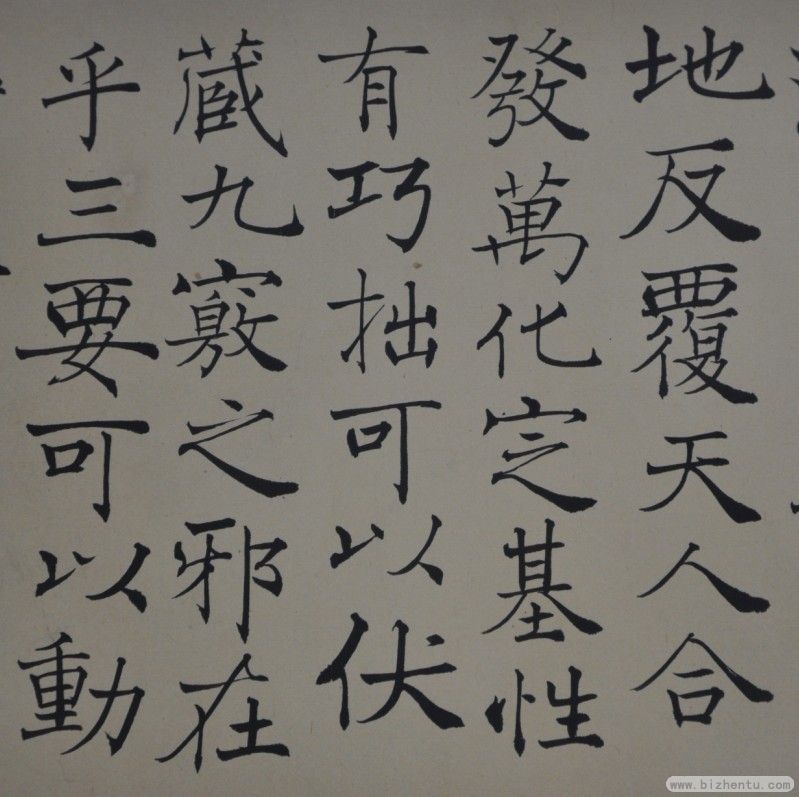 地反覆天人合
發萬化定基性
有巧拙可以伏
蔵九竅之邪在
乎三要可以動
www.bizhentu.com